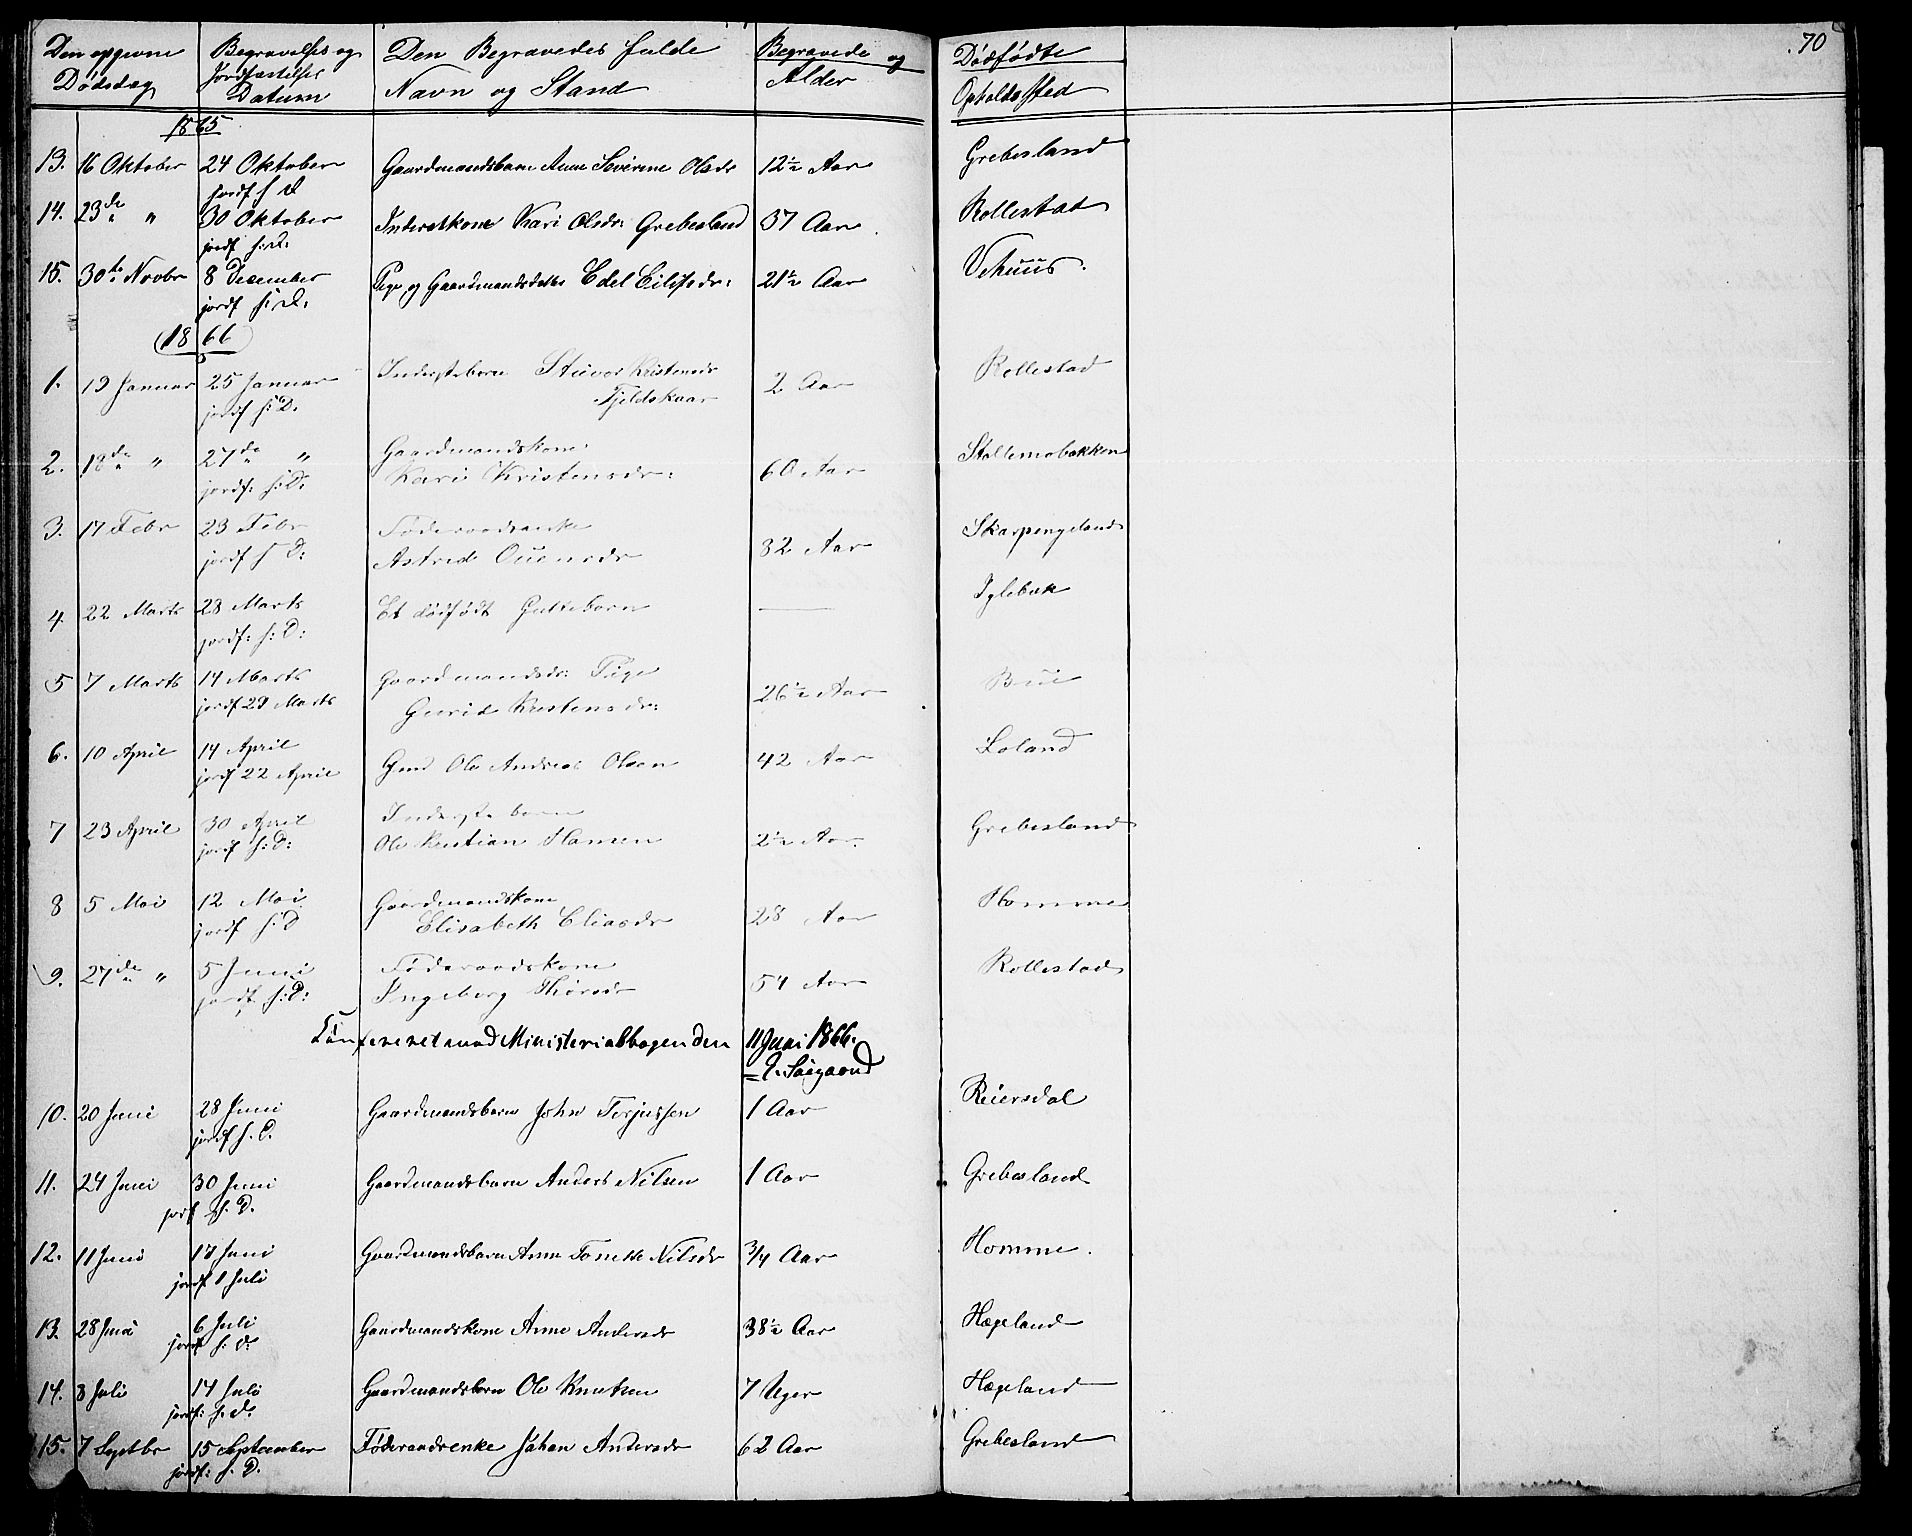 70
Den opgevne Begravelses og Den Begravedes fulde Begravede og Dødfødte
Dødsdag Jordfæstelses Datum Navn og Stand Alder Opholdssted
1865
13. 16 Oktober 24 Oktober Gaardmandsbarn Anne Severine Olsdr 12½ Aar Grebesland
jordf s D
14. 23de " 30 Oktober Inderstkone Kari Olsdr: Grebesland 37 Aar Rollestad
jordf s: D:
15. 30te Novbr 8 December Pige og Gaardmandsdatter Edel Eilefsdr: 21½ Aar Vehuus.
jordf s: D:
1866
1. 19 Januar 25 Januar Inderstebarn Kristensdr 2 Aar Rollestad
jordf s: D. Fjeldskaar
2. 18de " 27de " Gaardmandskone 60 Aar Stallemobakken
jordf: s: D: Kari Kristensdr:
3. 17 Febr 23 Febr Føderaadsenke 82 Aar Skarpengeland
jordf s D: Astrid Ouensdr
4. 22 Marts 28 Marts Et dødfødt Guttebarn — Iglebæk
jordf: s: D:
5 7 Marts 14 Marts Gaardmandsdr: Pige 26½ Aar Bue
jordf 29 Marts Gurid Kristensdr:
6. 10 April 14 April Gmd Ole Andreas Olsen 42 Aar Loland
jordf 22 April
7 23 April 30 April Inderstebarn 2½ Aar. Grebesland
jordf s: D: Ole Kristian Hansen
8 5 Mai 12 Mai Gaardmandskone 28 Aar Homme
jordf s: D Elisabeth Eliasdr
9. 27de " 5 Juni Føderaadskone 54 Aar Rollestad
jordf s: D: Ingeborg Thorsdr
Konfereret med Ministerialbogen den 11 Juni 1866.
Søegaard
10. 20 Juni 28 Juni Gaardmandsbarn John Terjussen 1 Aar Reiersdal
jordf s. D.
11. 24 Juni 30 Juni Gaardmandsbarn Anders Nilsen 1 Aar Grebesland
jordf s. D.
12. 11 Juni 17 Juni Gaardmandsbarn Anne Tonette Nilsdr ¾ Aar Homme.
jordf 1 Juli
13. 28 Juni 6 Juli Gaardmandskone Anne Andersdr 38½ Aar Hægeland
jordf s: D:
14. 3 Juli 14 Juli Gaardmandsbarn Ole Knutsen 7 Uger Hægeland
jordf: s. D:
15. 7 Septbr 15 September Føderaadsenke Johan Andersdr 62 Aar Grebesland
jordf: s. D.